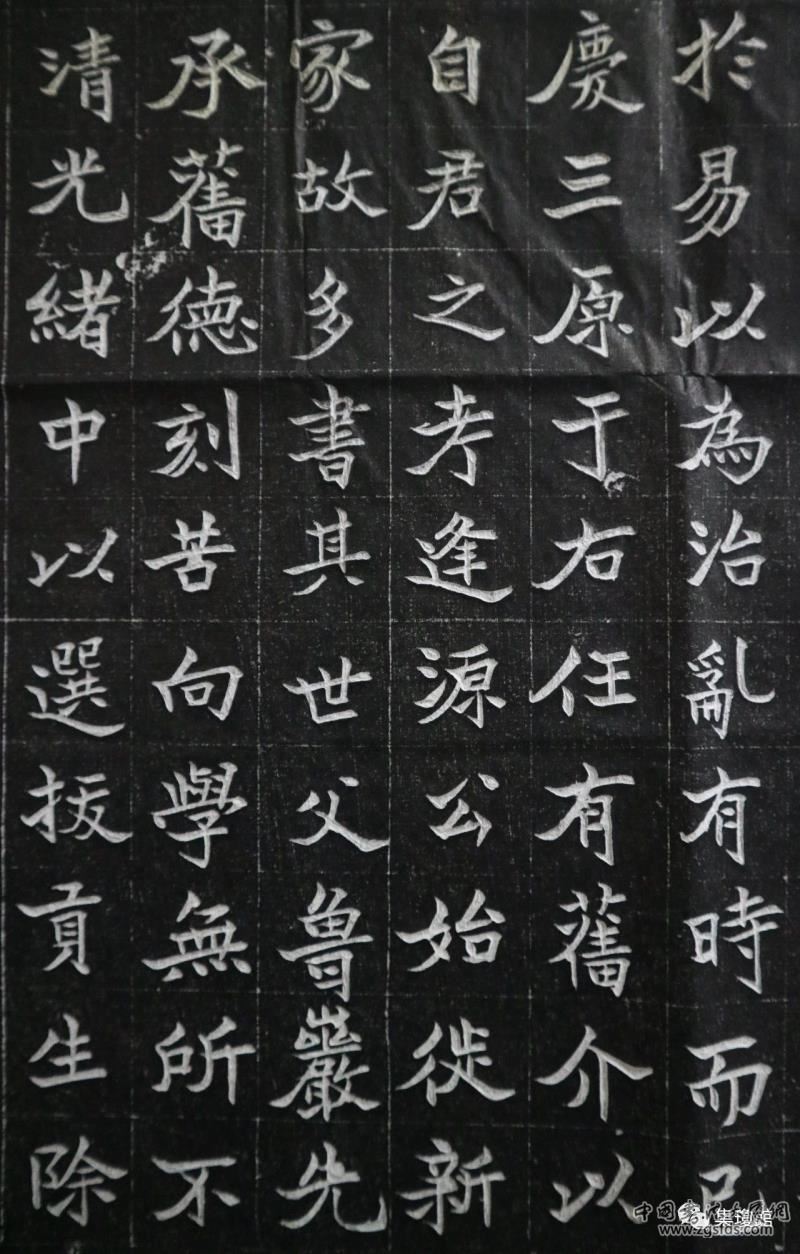 於易以為治亂有時而
慶三原于右任有舊介以
自君之考逢源公始徙新
家故多書其世父魯巖先
承舊德刻苦向學無所不
清光緒中以選拔貢生除
中國書法家園網
集瓊館
www.zgsfds.com